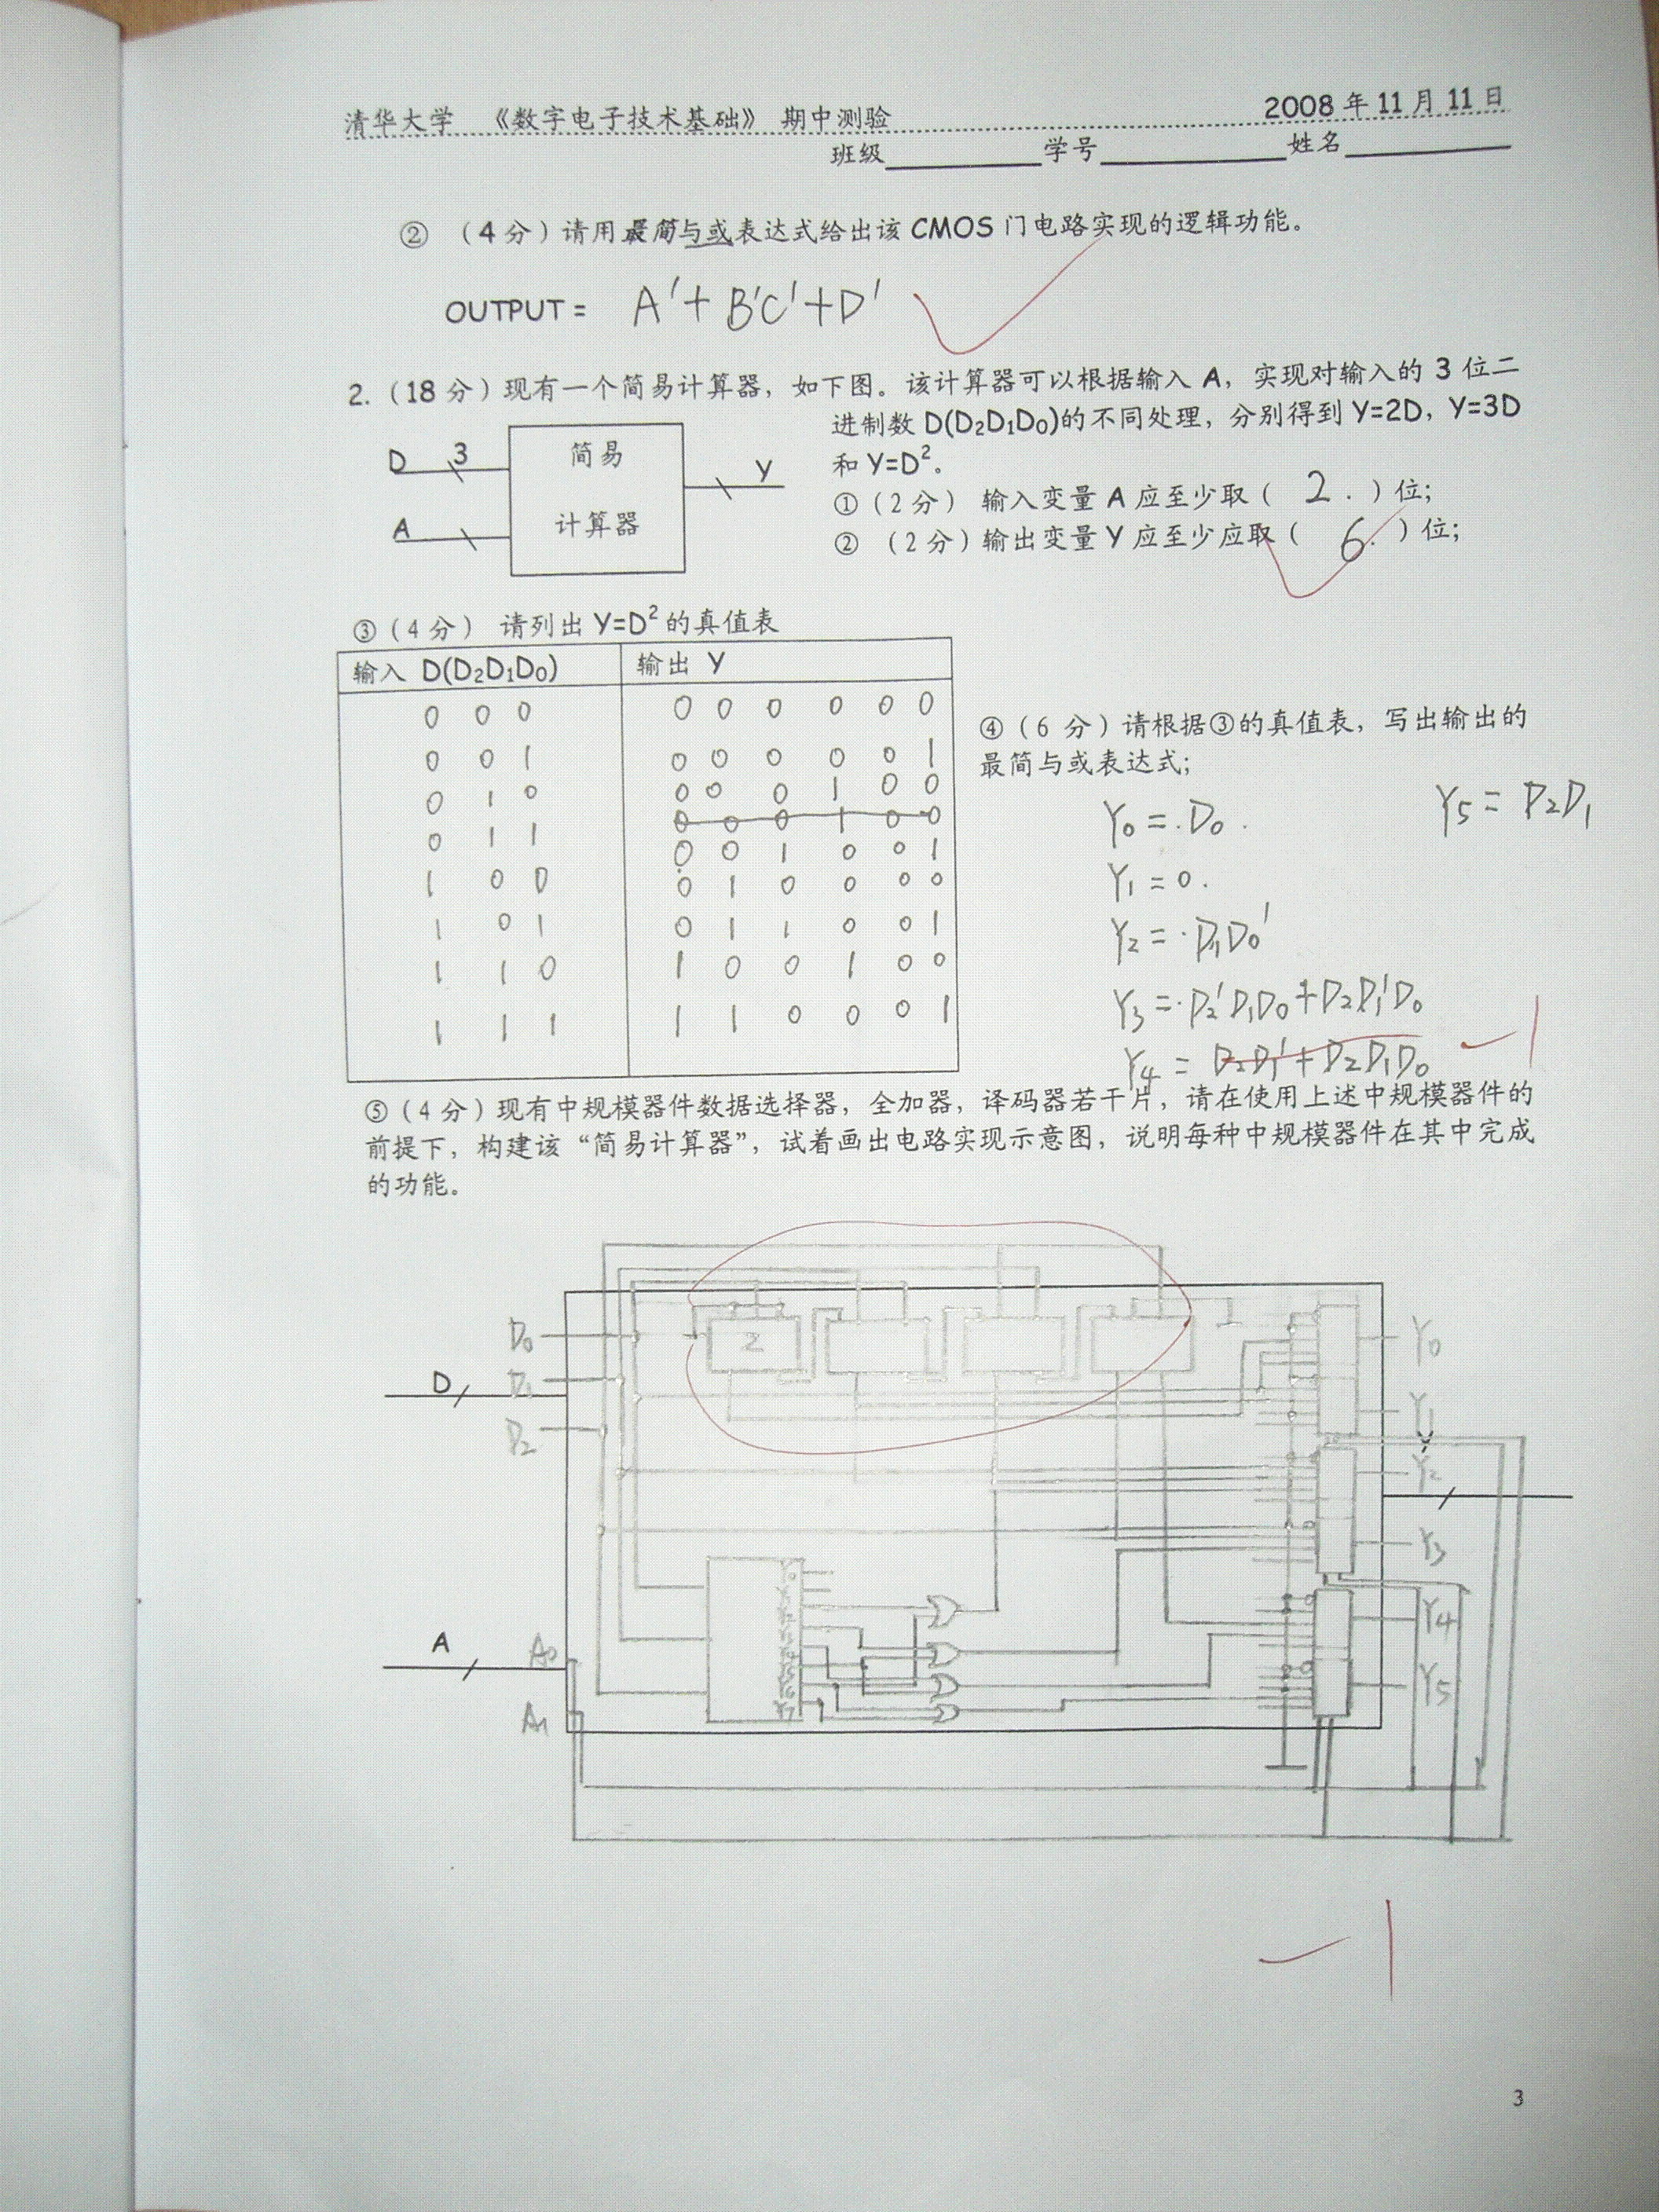 清华大学 《数字电子技术基础》 期中测验 2008年11月11日
班级 学号 姓名
② （4分）请用最简与或表达式给出该CMOS门电路实现的逻辑功能。
OUTPUT = A'+B'C'+D'
2.（18分）现有一个简易计算器，如下图。该计算器可以根据输入A，实现对输入的3位二
进制数D(D₂D₁D₀)的不同处理，分别得到Y=2D，Y=3D
和Y=D²。
D 3 简易 Y
A 计算器
①（2分） 输入变量A应至少取（ 2. ）位；
② （2分）输出变量Y应至少应取（ 6. ）位；
③（4分） 请列出Y=D²的真值表
输入 D(D₂D₁D₀) 输出 Y
0 0 0 0 0 0 0 0 0
0 0 1 0 0 0 0 0 1
0 1 0 0 0 0 1 0 0
0 0 0 1 0 0
0 1 1 0 0 1 0 0 1
1 0 0 0 1 0 0 0 0
1 0 1 0 1 1 0 0 1
1 1 0 1 0 0 1 0 0
1 1 1 1 1 0 0 0 1
④（6 分）请根据③的真值表，写出输出的
最简与或表达式；
Y₀ = D₀.
Y₅ = D₂D₁
Y₁ = 0.
Y₂ = D₁D₀'
Y₃ = D₂'D₁D₀+D₂D₁'D₀
Y₄ = D₂D₁'+D₂D₁D₀ -1
⑤（4分）现有中规模器件数据选择器，全加器，译码器若干片，请在使用上述中规模器件的
前提下，构建该“简易计算器”，试着画出电路实现示意图，说明每种中规模器件在其中完成
的功能。
D₀
Σ
Y₀
D
D₁
Y₁
D₂
Y
Y₂
Y₃
A
A₀
Y₄
Y₅
A₁
-1
3